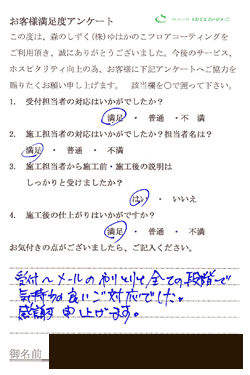 お客様満足度アンケート
ゆはかのこ
この度は、森のしずく(株)ゆはかのこフロアコーティングを
ご利用頂き、誠にありがとうございました。今後のサービス、
ホスピタリティ向上の為、お客様に下記アンケートへご協力を
賜りたくお願い申し上げます。 該当欄を○で囲って下さい。
1. 受付担当者の対応はいかがでしたか?
満足 ・ 普通 ・ 不満
2. 施工担当者の対応はいかがでしたか?担当者名は?
満足 ・ 普通 ・ 不満
3. 施工担当者から施工前・施工後の説明は
しっかりと受けましたか?
はい ・ いいえ
4. 施工後の仕上がりはいかがですか?
満足 ・ 普通 ・ 不満
お気付きの点がございましたら、ご記入ください。
受付〜メールのやりとり全ての段階で
気持ち良いご対応でした。
感謝申し上げます。
御名前